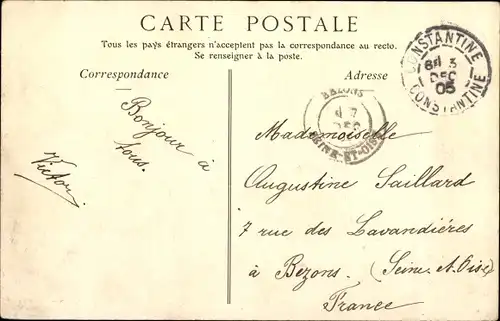 CARTE POSTALE
Tous les pays étrangers n'acceptent pas la correspondance au recto.
Se renseigner à la poste.
Correspondance
Adresse
CONSTANTINE
3
DEC
05
CONSTANTINE
BEZONS
7
DEC
SEINE-ET-OISE
Bonjour à
tous.
Victor.
Mademoiselle
Augustine Saillard
7 rue des Lavandiéres
à Bezons. (Seine et Oise)
France